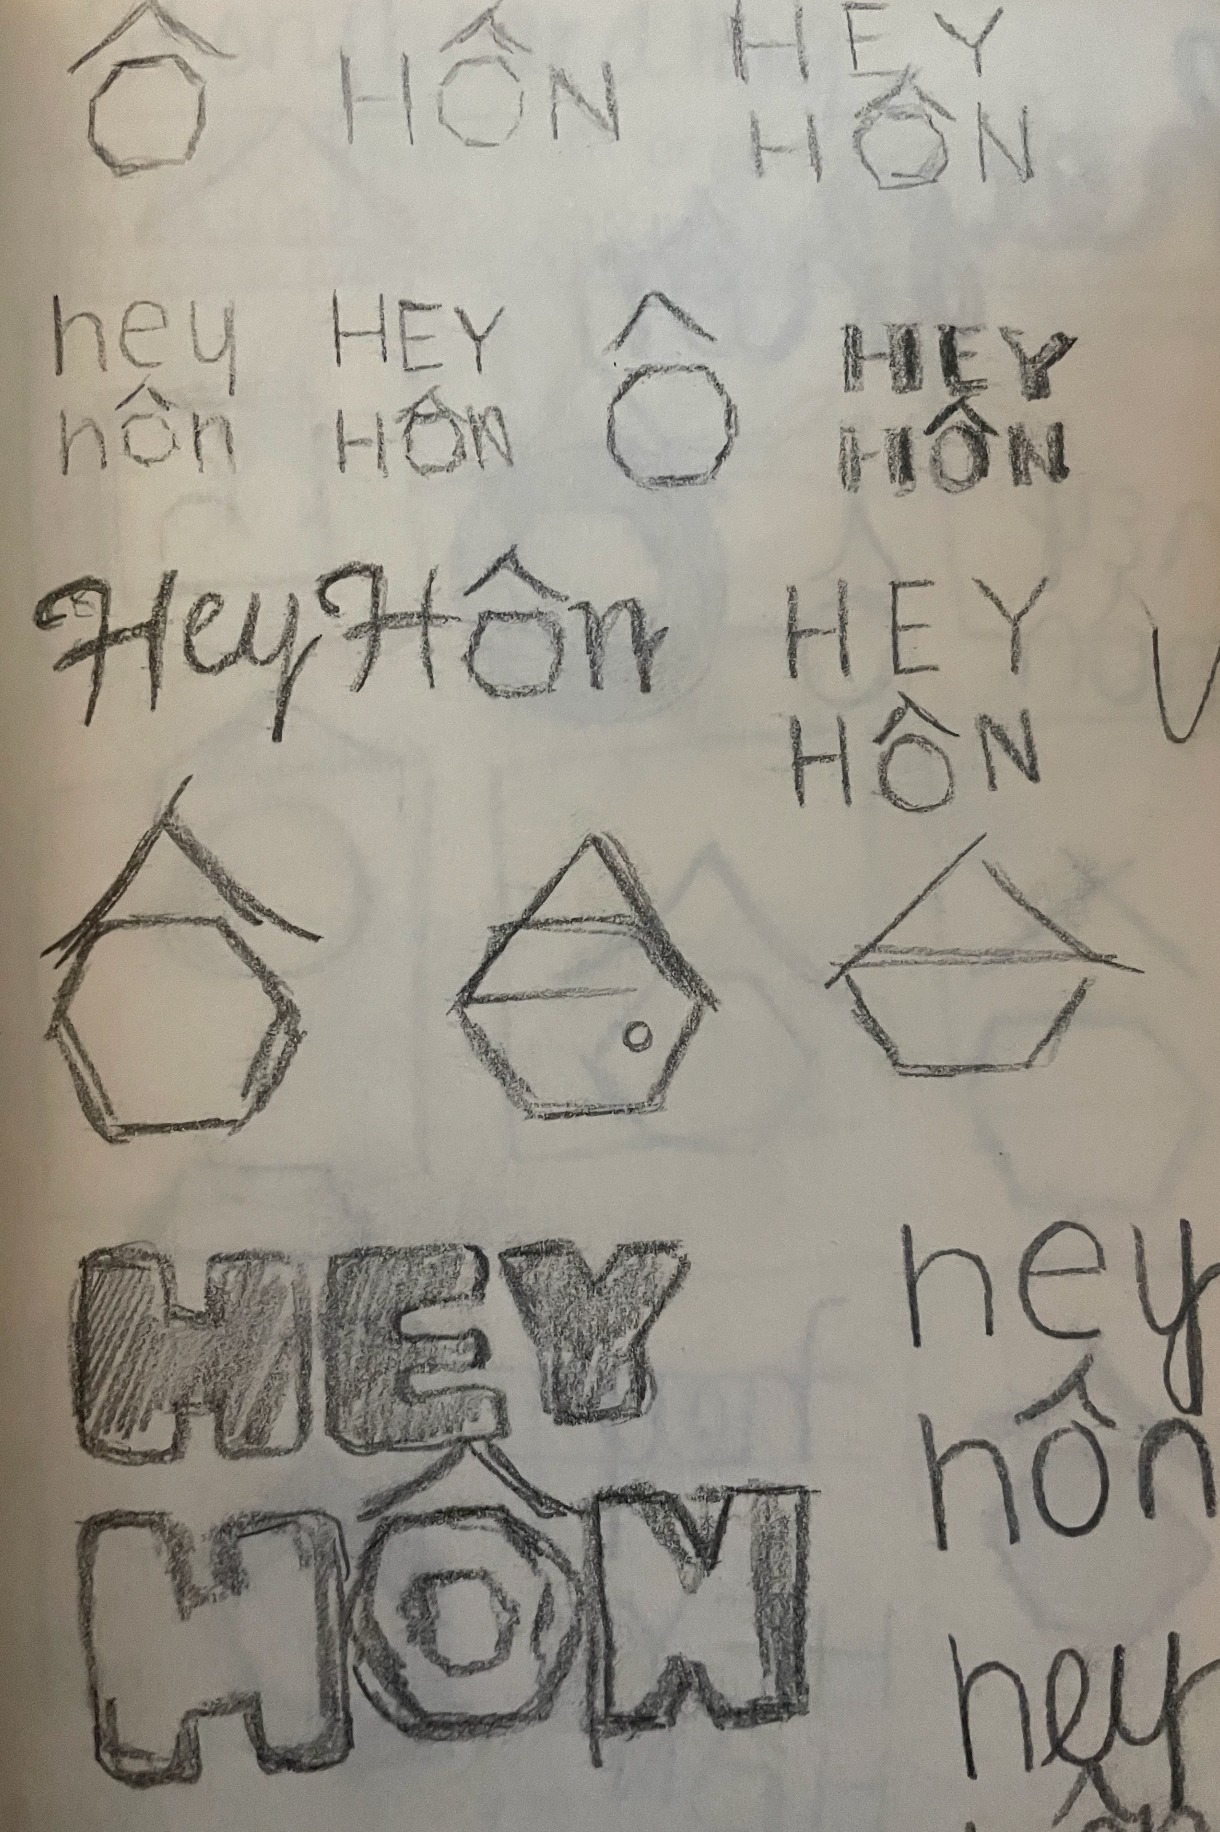 Ô
HÔN
HEY
HÔN
hey
hôn
HEY
HÔN
Ô
HEY
HÔN
Hey Hôn
HEY
HÔN
Ô
HEY
HÔN
hey
hôn
hey